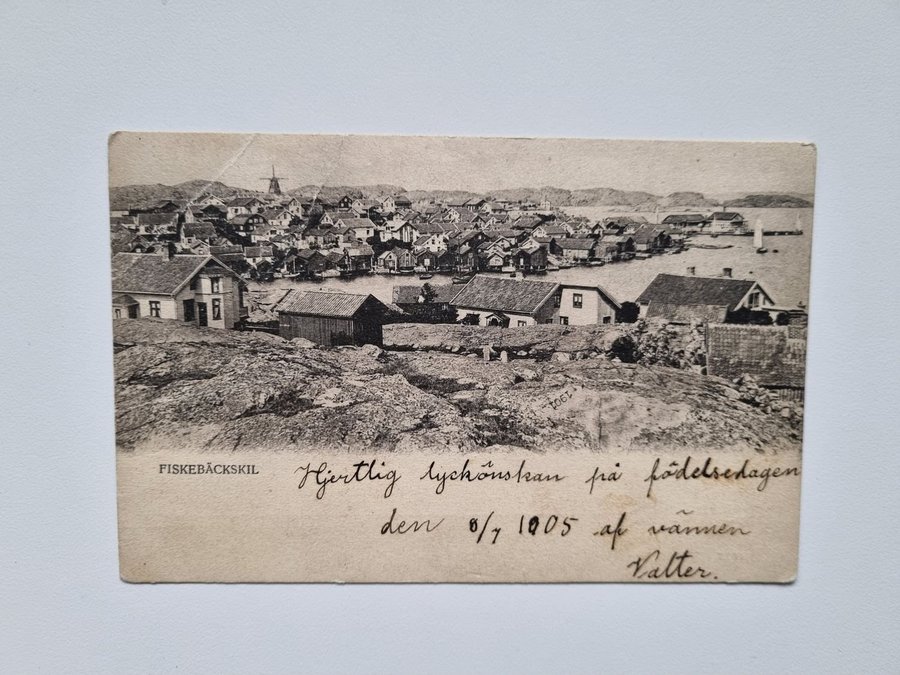 FISKEBÄCKSKIL
Hjertlig lyckönskan på födelsedagen
den 8/7 1905 af vännen
Valter.